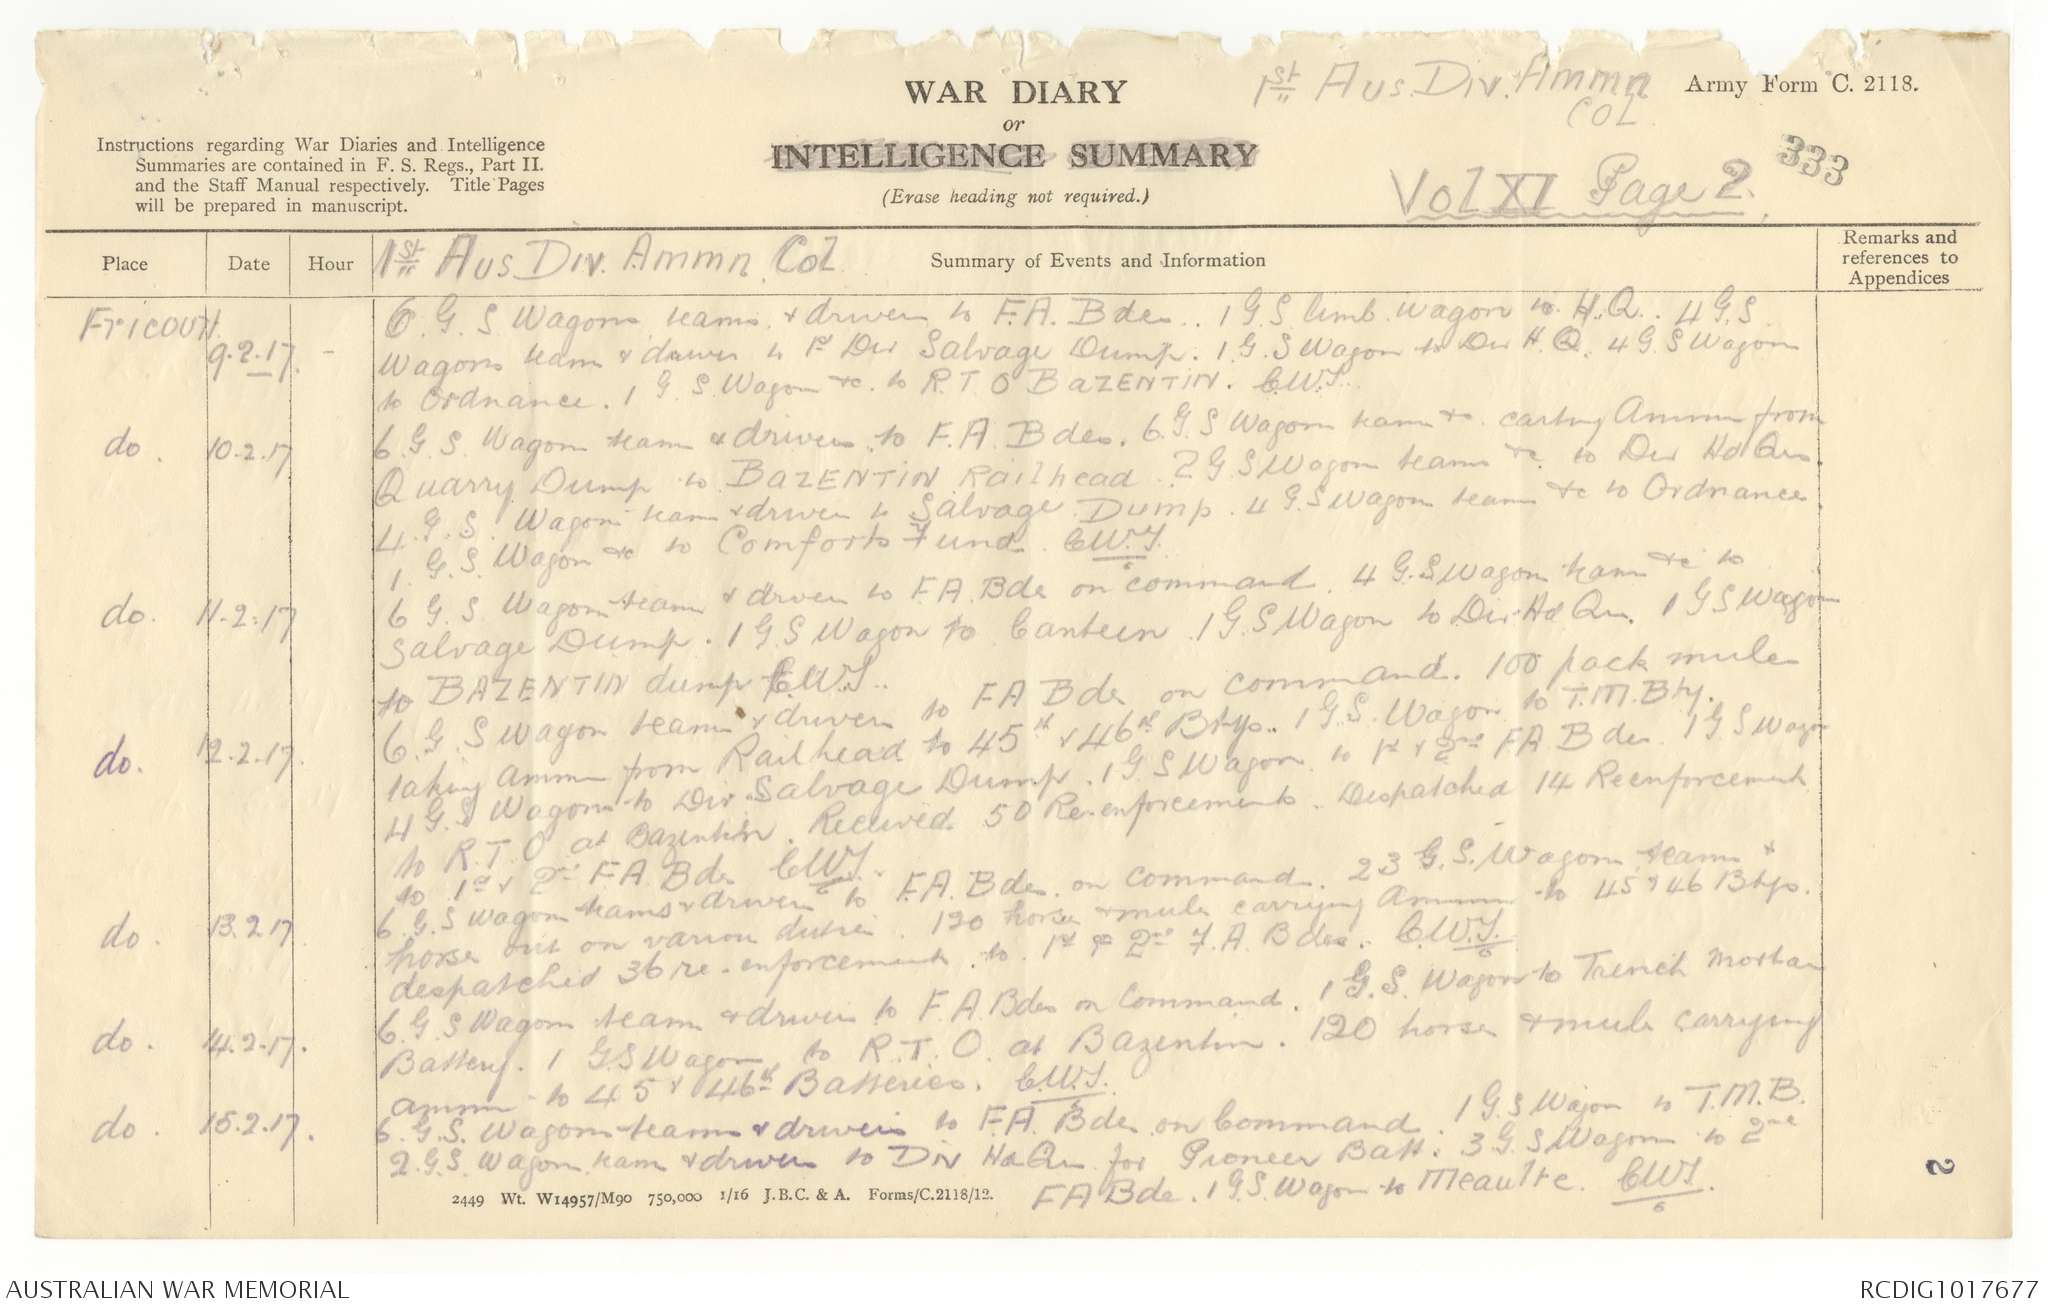 WAR DIARY
or
INTELLIGENCE SUMMARY
(Erase heading not required.)
1st Aus. Div. Ammn
COL
Army Form C. 2118.
Instructions regarding War Diaries and Intelligence
Summaries are contained in F. S. Regs., Part II.
and the Staff Manual respectively. Title Pages
will be prepared in manuscript.
333
Vol XI Page 2.
Place
Date
Hour
1st Aus Div. Ammn Col
Summary of Events and Information
Remarks and
references to
Appendices
Fricourt.
9.2.17. -
6. G. S Wagons teams & drivers to F.A. Bdes.. 1 G.S limb. wagon to H.Q.. 4 G.S
Wagons team & drivers to 1st Div Salvage Dump. 1.G.S Wagon to Div H.Q. 4 G S Wagon
to Ordnance. 1 G.S. Wagon &c. to R.T O BAZENTIN. C.W.S..
do. 10.2.17
6 G. S. Wagon team & drivers to F.A. Bdes. 6 G.S Wagon team &c. carting Ammn from
Quarry Dump to BAZENTIN Railhead. 2 G S Wagon teams &c. to Div Hd Qrs.
4. G. S. Wagons team & drivers to Salvage Dump. 4 G.S Wagon teams &c to Ordnance
1. G. S. Wagon &c to Comforts Fund. C.W.S.
do. 11.2.17
6 G.S Wagon teams & drivers to F.A. Bde on command. 4 G.S Wagon team &c to
Salvage Dump. 1 G S Wagon to Canteen. 1 G.S Wagon to Div Hd Qrs. 1 G S Wagon
to BAZENTIN dump C.W.S..
do. 12.2.17.
6. G. S Wagon team & drivers to F A Bde on command. 100 pack mules
taking ammn from Railhead to 45th & 46th Btys. 1 G.S. Wagon to T.M. Bty.
4 G.S Wagons to Div Salvage Dump. 1 G S Wagon to 1st & 2nd F.A. Bde. 1 G S Wagon
to R.T.O at Bazentin. Received 50 Re-enforcements. Despatched 14 Reenforcement
to 1st & 2nd F.A. Bde C.W.S.
do. 13.2.17
6. G. S Wagon teams & drivers to F.A. Bde. on command. 23 G.S. Wagon teams &
horses out on various duties. 120 horse & mule carrying Ammn to 45 & 46 Btys.
despatched 36 re-enforcement to 1st & 2nd F. A. Bdes. C.W.S.
do. 14.2.17.
6. G. S Wagon teams & drivers to F.A. Bdes on Command. 1 G.S. Wagon to Trench Mortar
Battery. 1 G.S Wagon to R.T.O. at Bazentin. 120 horse & mule carrying
ammn to 45 & 46th Batteries. C.W.S.
do. 15.2.17.
6. G. S. Wagons teams & drivers to F.A. Bde on Command. 1 G.S Wagon to T.M.B.
2. G.S. Wagon team & drivers to Div Hd Qrs for Pioneer Batt: 3 G S Wagon to 2nd
F A Bde. 1 G.S. Wagon to Meaulte. C.W.S.
2
2449 Wt. W14957/M90 750,000 1/16 J.B.C. & A. Forms/C.2118/12.
AUSTRALIAN WAR MEMORIAL
RCDIG1017677